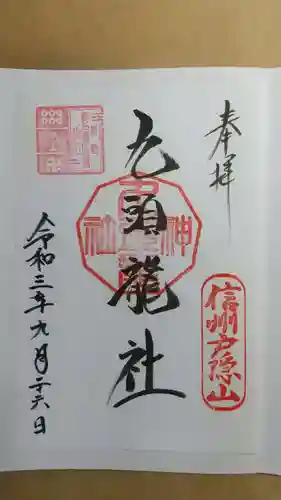 奉拝
信州戸隠山
九頭龍社
令和三年九月二十六日